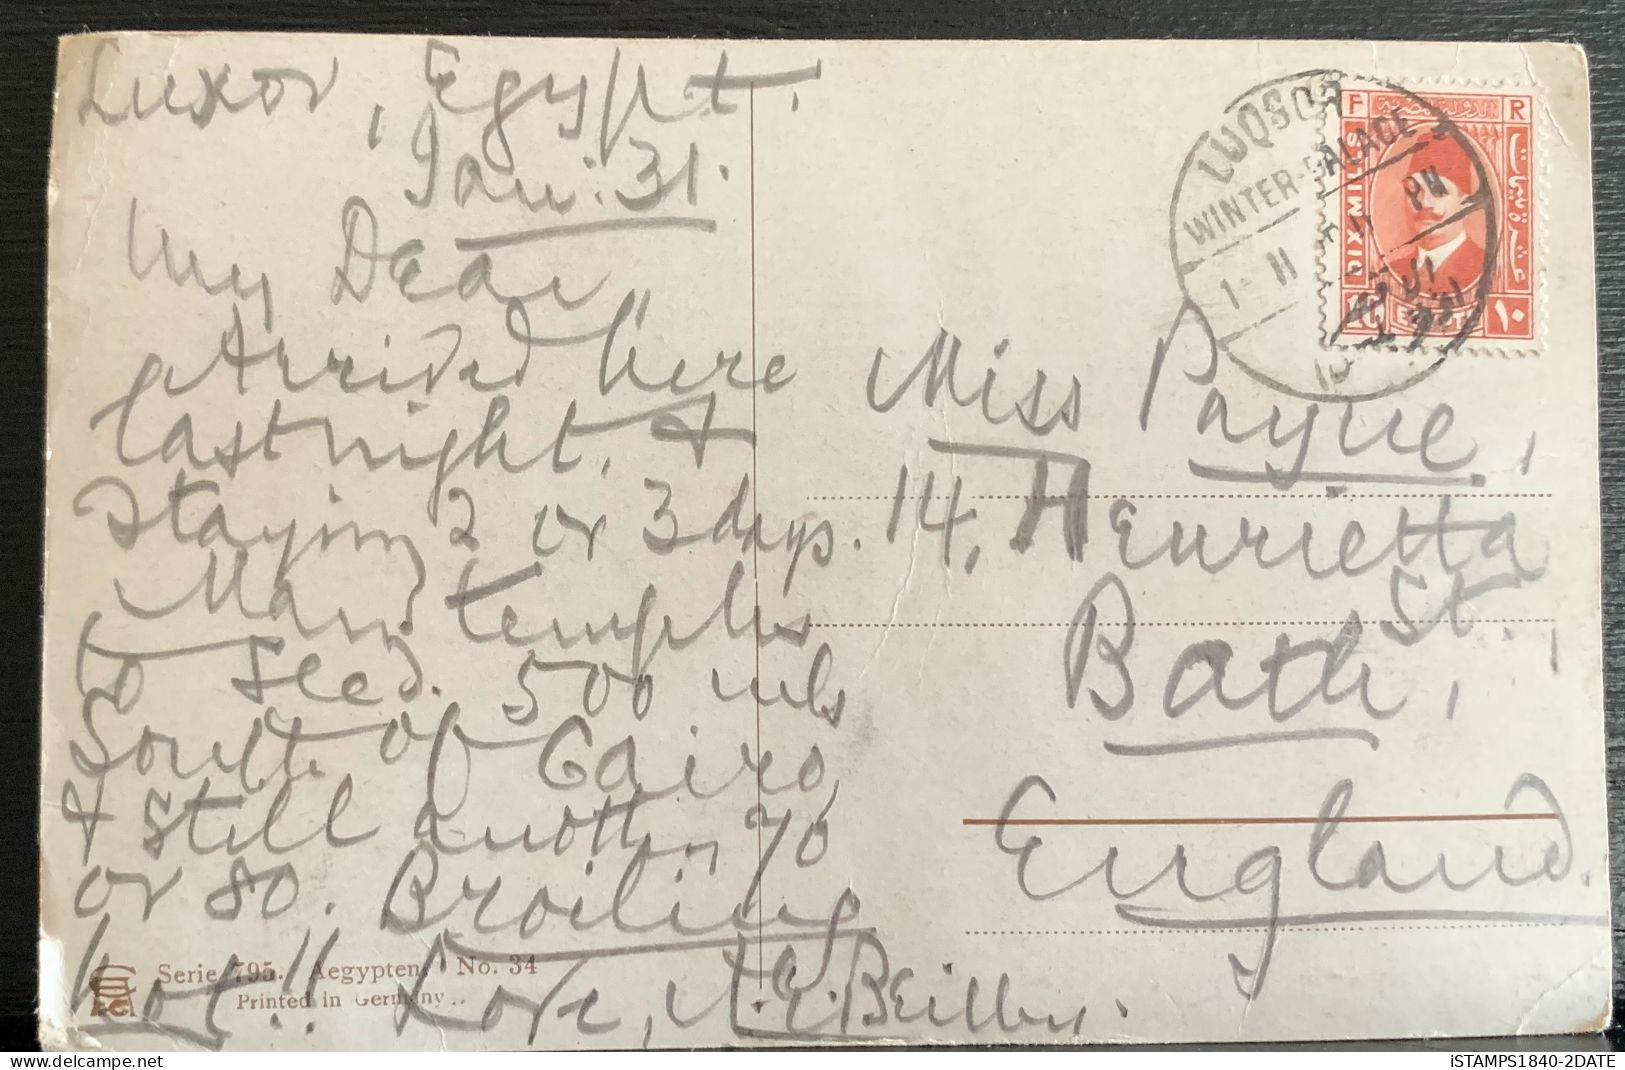 Luxor, Egypt.
Jan: 31.
My Dear
Arrived here
last night, &
staying 2 or 3 days.
Many temples
to see. 500 mls
South of Cairo,
& still another 70
or so. Broiling
hot!! Love,
Serie 795. Aegypten. No. 34
Printed in Germany
LUQSOR
WINTER-PALACE
1- II
PM
F R
الدولة المصرية
DIX MILLS
عشرة مليمات
10 EGYPTE ١٠
Miss Payne,
14, Henrietta
St.
Bath,
England.
iSTAMPS1840-2DATE